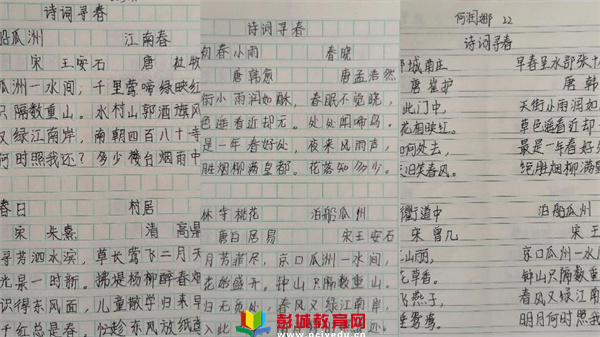 诗词寻春
船瓜洲 江南春
宋 王安石 唐 杜牧
瓜洲一水间，千里莺啼绿映红
只隔数重山。水村山郭酒旗风
又绿江南岸，南朝四百八十寺
何时照我还？多少楼台烟雨中
春日 村居
宋 朱熹 清 高鼎
寻芳泗水滨，草长莺飞二月天
光景一时新。拂堤杨柳醉春烟
识得东风面，儿童散学归来早
千红总是春。忙趁东风放纸鸢
诗词寻春
初春小雨 春晓
唐韩愈 唐孟浩然
街小雨润如酥，春眠不觉晓，
色遥看近却无。处处闻啼鸟。
是一年春好处，夜来风雨声，
胜烟柳满皇都。花落知多少。
林寺桃花 泊船瓜州
唐白居易 宋王安石
月芳菲尽，京口瓜州一水间，
花始盛开。钟山只隔数重山。
归无觅处，春风又绿江南岸，
入此
何润娜 22
诗词寻春
都城南庄 早春呈水部张十
唐 崔护 唐 韩
此门中， 天街小雨润如
花相映红。 草色遥看近却
何处去， 最是一年春好
旧笑春风。 绝胜烟柳满皇
衢道中 泊船瓜州
宋 曾几 宋 王
山行， 京口瓜州一水
钟山只隔数重
春风又绿江
明月何时照我
彭城教育网